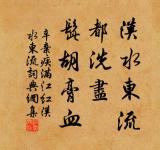 漢水東流
都洗盡
髭胡膏血
辛棄疾滿江紅漢
水東流詞典網集